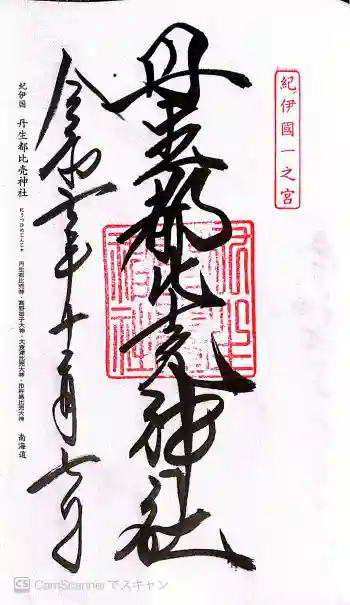 紀伊國一之宮
丹生都比売神社
令和二年十二月七日
紀伊国 丹生都比売神社 にうつひめじんじゃ 丹生都比売大神・高野御子大神・大食津比売大神・市杵島比売大神 南海道
CS CamScannerでスキャン